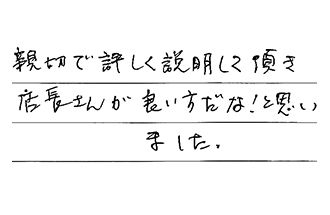 親切で詳しく説明して頂き
店長さんが良い方だな!と思い
ました.